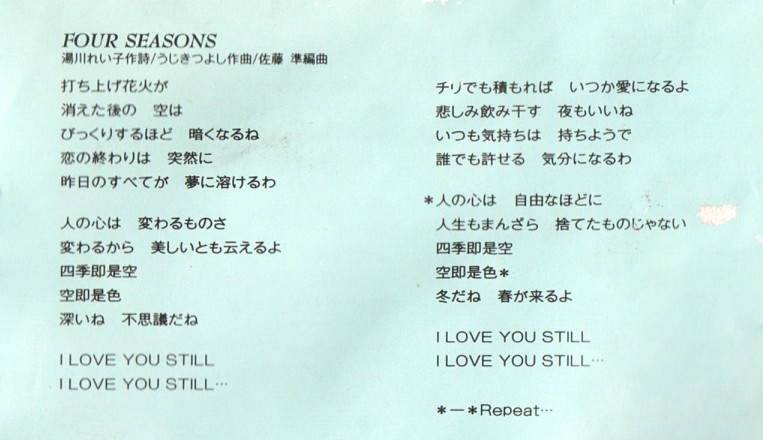 FOUR SEASONS
湯川れい子作詩/うじきつよし作曲/佐藤 準編曲
打ち上げ花火が
消えた後の　空は
びっくりするほど　暗くなるね
恋の終わりは　突然に
昨日のすべてが　夢に溶けるわ
人の心は　変わるものさ
変わるから　美しいとも云えるよ
四季即是空
空即是色
深いね　不思議だね
I LOVE YOU STILL
I LOVE YOU STILL…
チリでも積もれば　いつか愛になるよ
悲しみ飲み干す　夜もいいね
いつも気持ちは　持ちようで
誰でも許せる　気分になるわ
＊人の心は　自由なほどに
人生もまんざら　捨てたものじゃない
四季即是空
空即是色＊
冬だね　春が来るよ
I LOVE YOU STILL
I LOVE YOU STILL…
＊―＊Repeat…